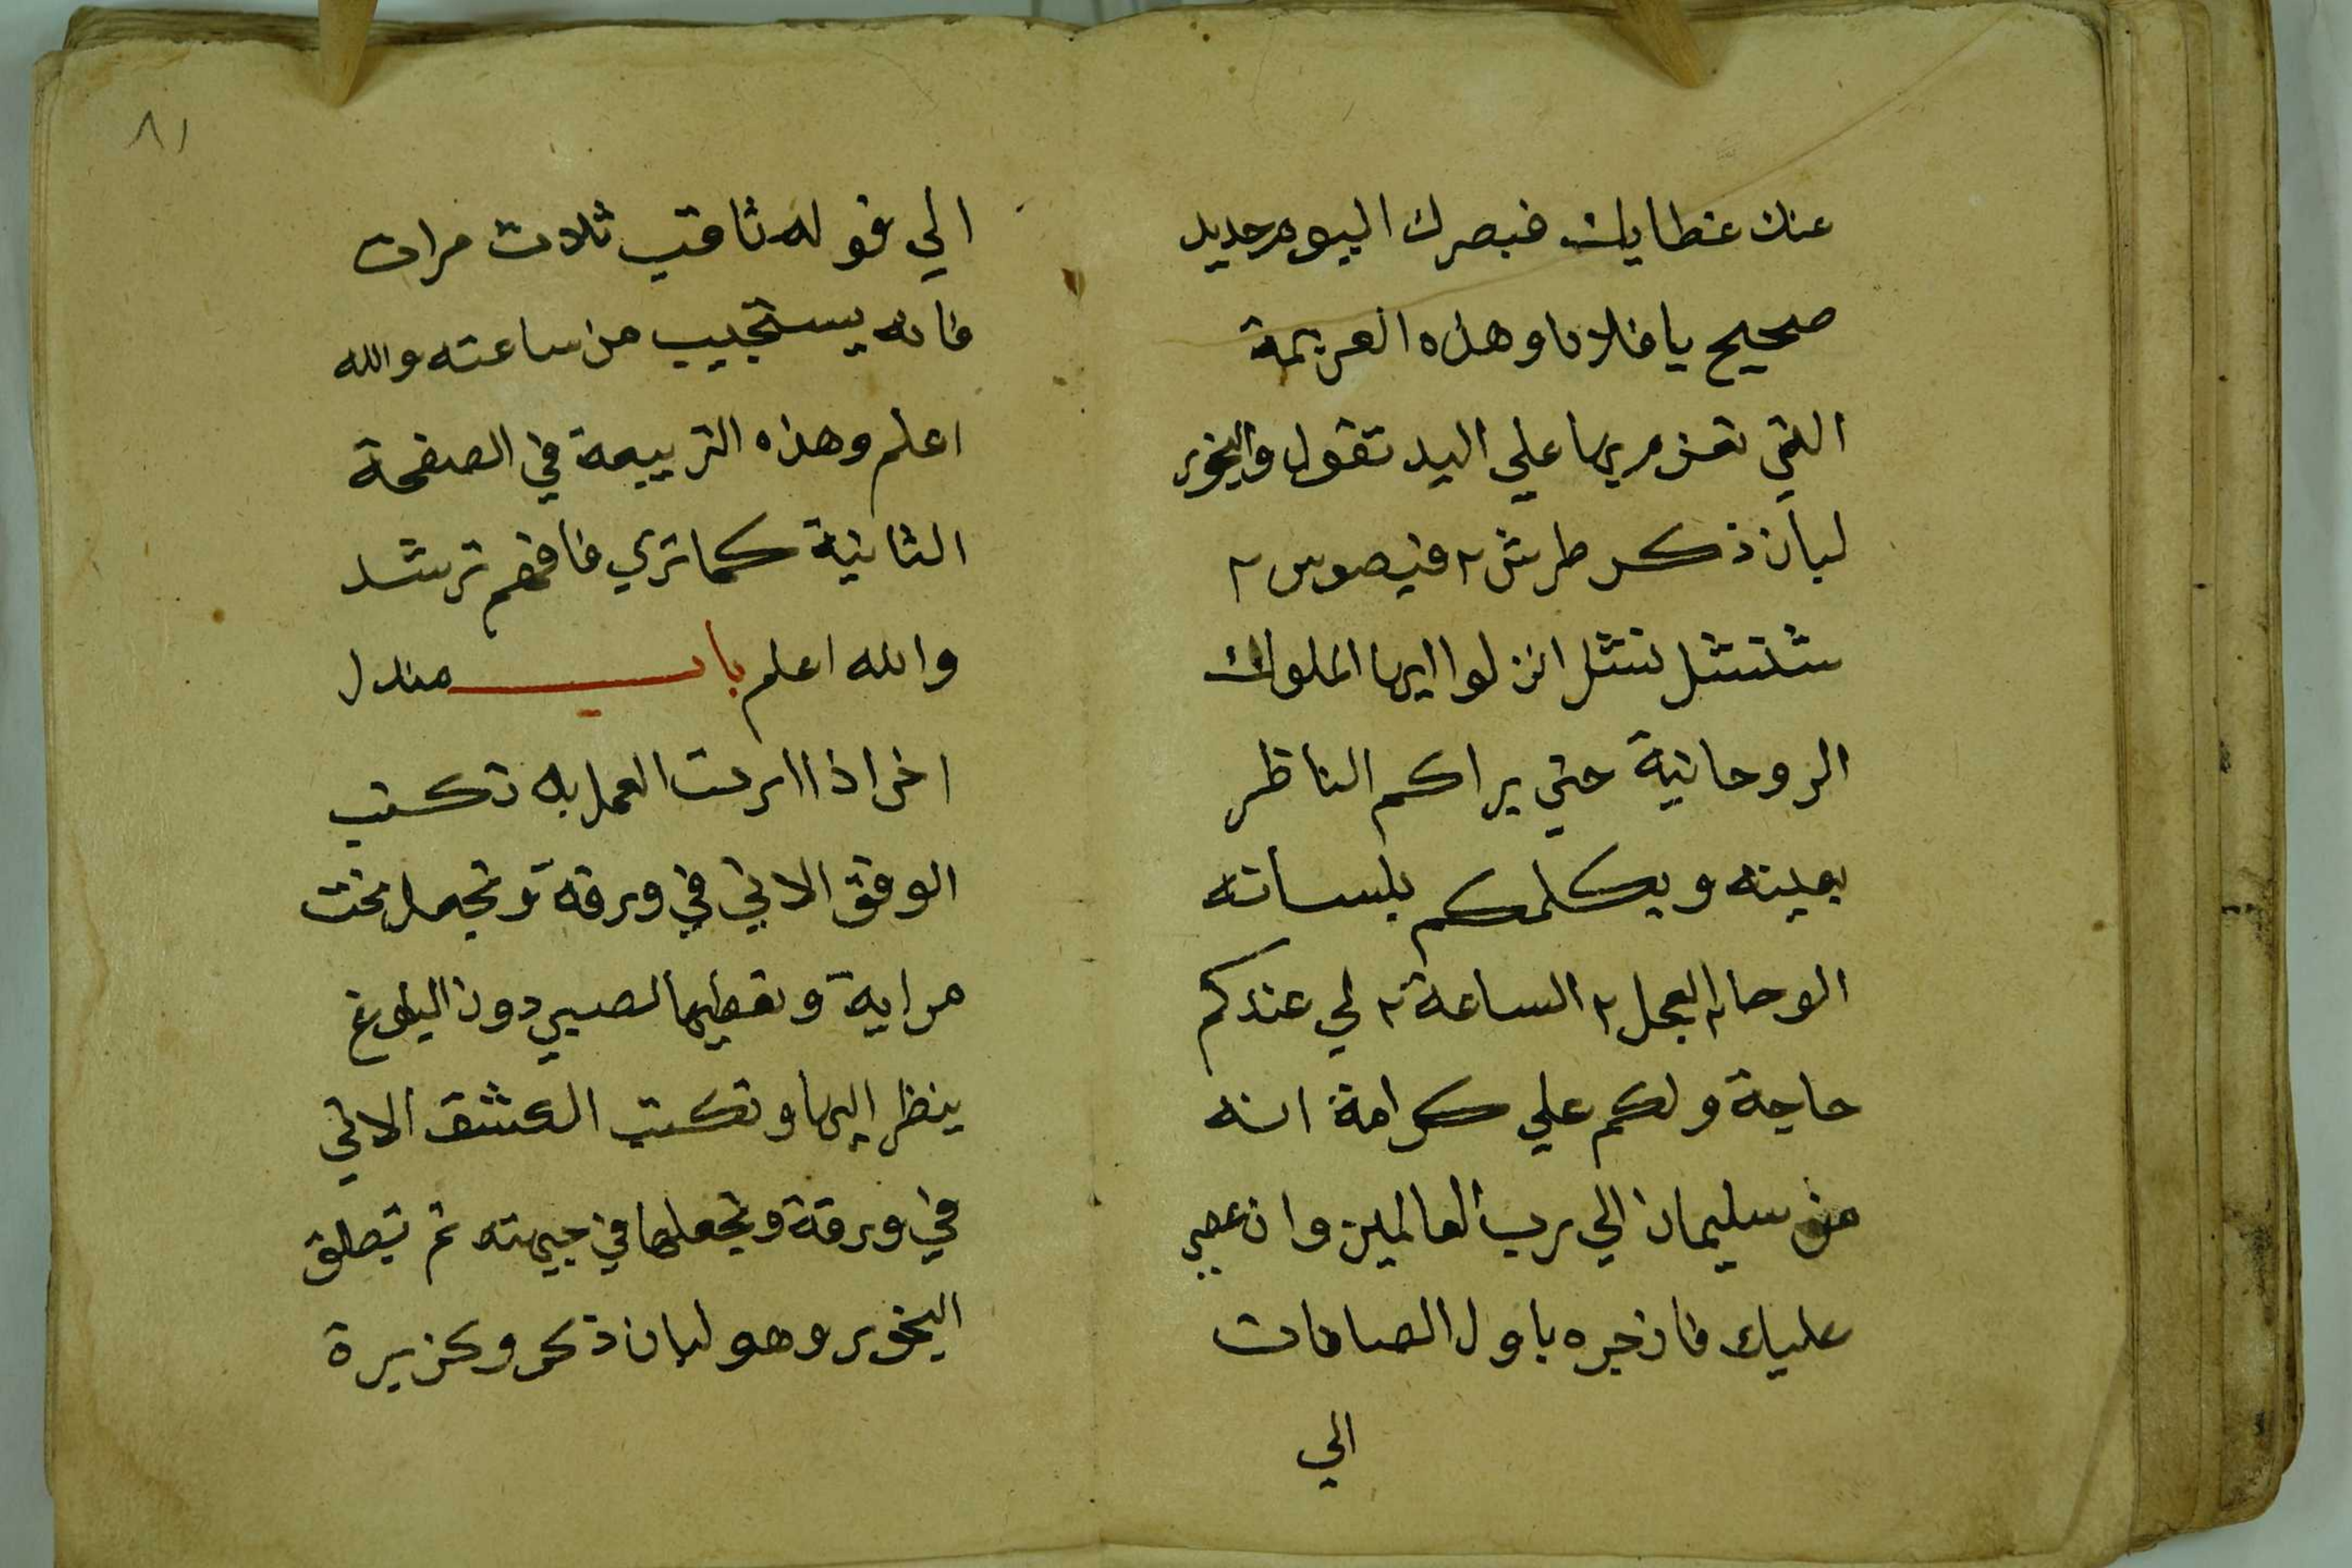 عنك غطايك فبصرك اليوم حديد
صحيح يا فلان وهذه العزيمة
التي تعزم بها علي اليد تقول والبخور
لبان ذكر طرش ٢ فيصوس ٢
شلتشل نتشل انزلوا ايها الملوك
الروحانية حتي يراكم الناظر
بعينه ويكلمكم بلسانه
الوحا ٢ العجل ٢ الساعة ٢ لي عندكم
حاجة ولكم علي كرامة انه
من سليمان الي رب العالمين وان عصي
عليك فازجره باول الصافات
الي
٨١
الي قوله ثاقب ثلاث مرات
فانه يستجيب من ساعته والله
اعلم وهذه التربيعة في الصفحة
الثانية كما تري فافهم ترشد
والله اعلم باب مندل
اخر اذا اردت العمل به تكتب
الوفق الاتي في ورقة وتجعل تحت
مراية وتعطيها لصبي دون البلوغ
ينظر اليها وتكتب الكشف الاتي
في ورقة وتجعلها في جبهته ثم تطلق
البخور وهو لبان ذكر وكزبرة